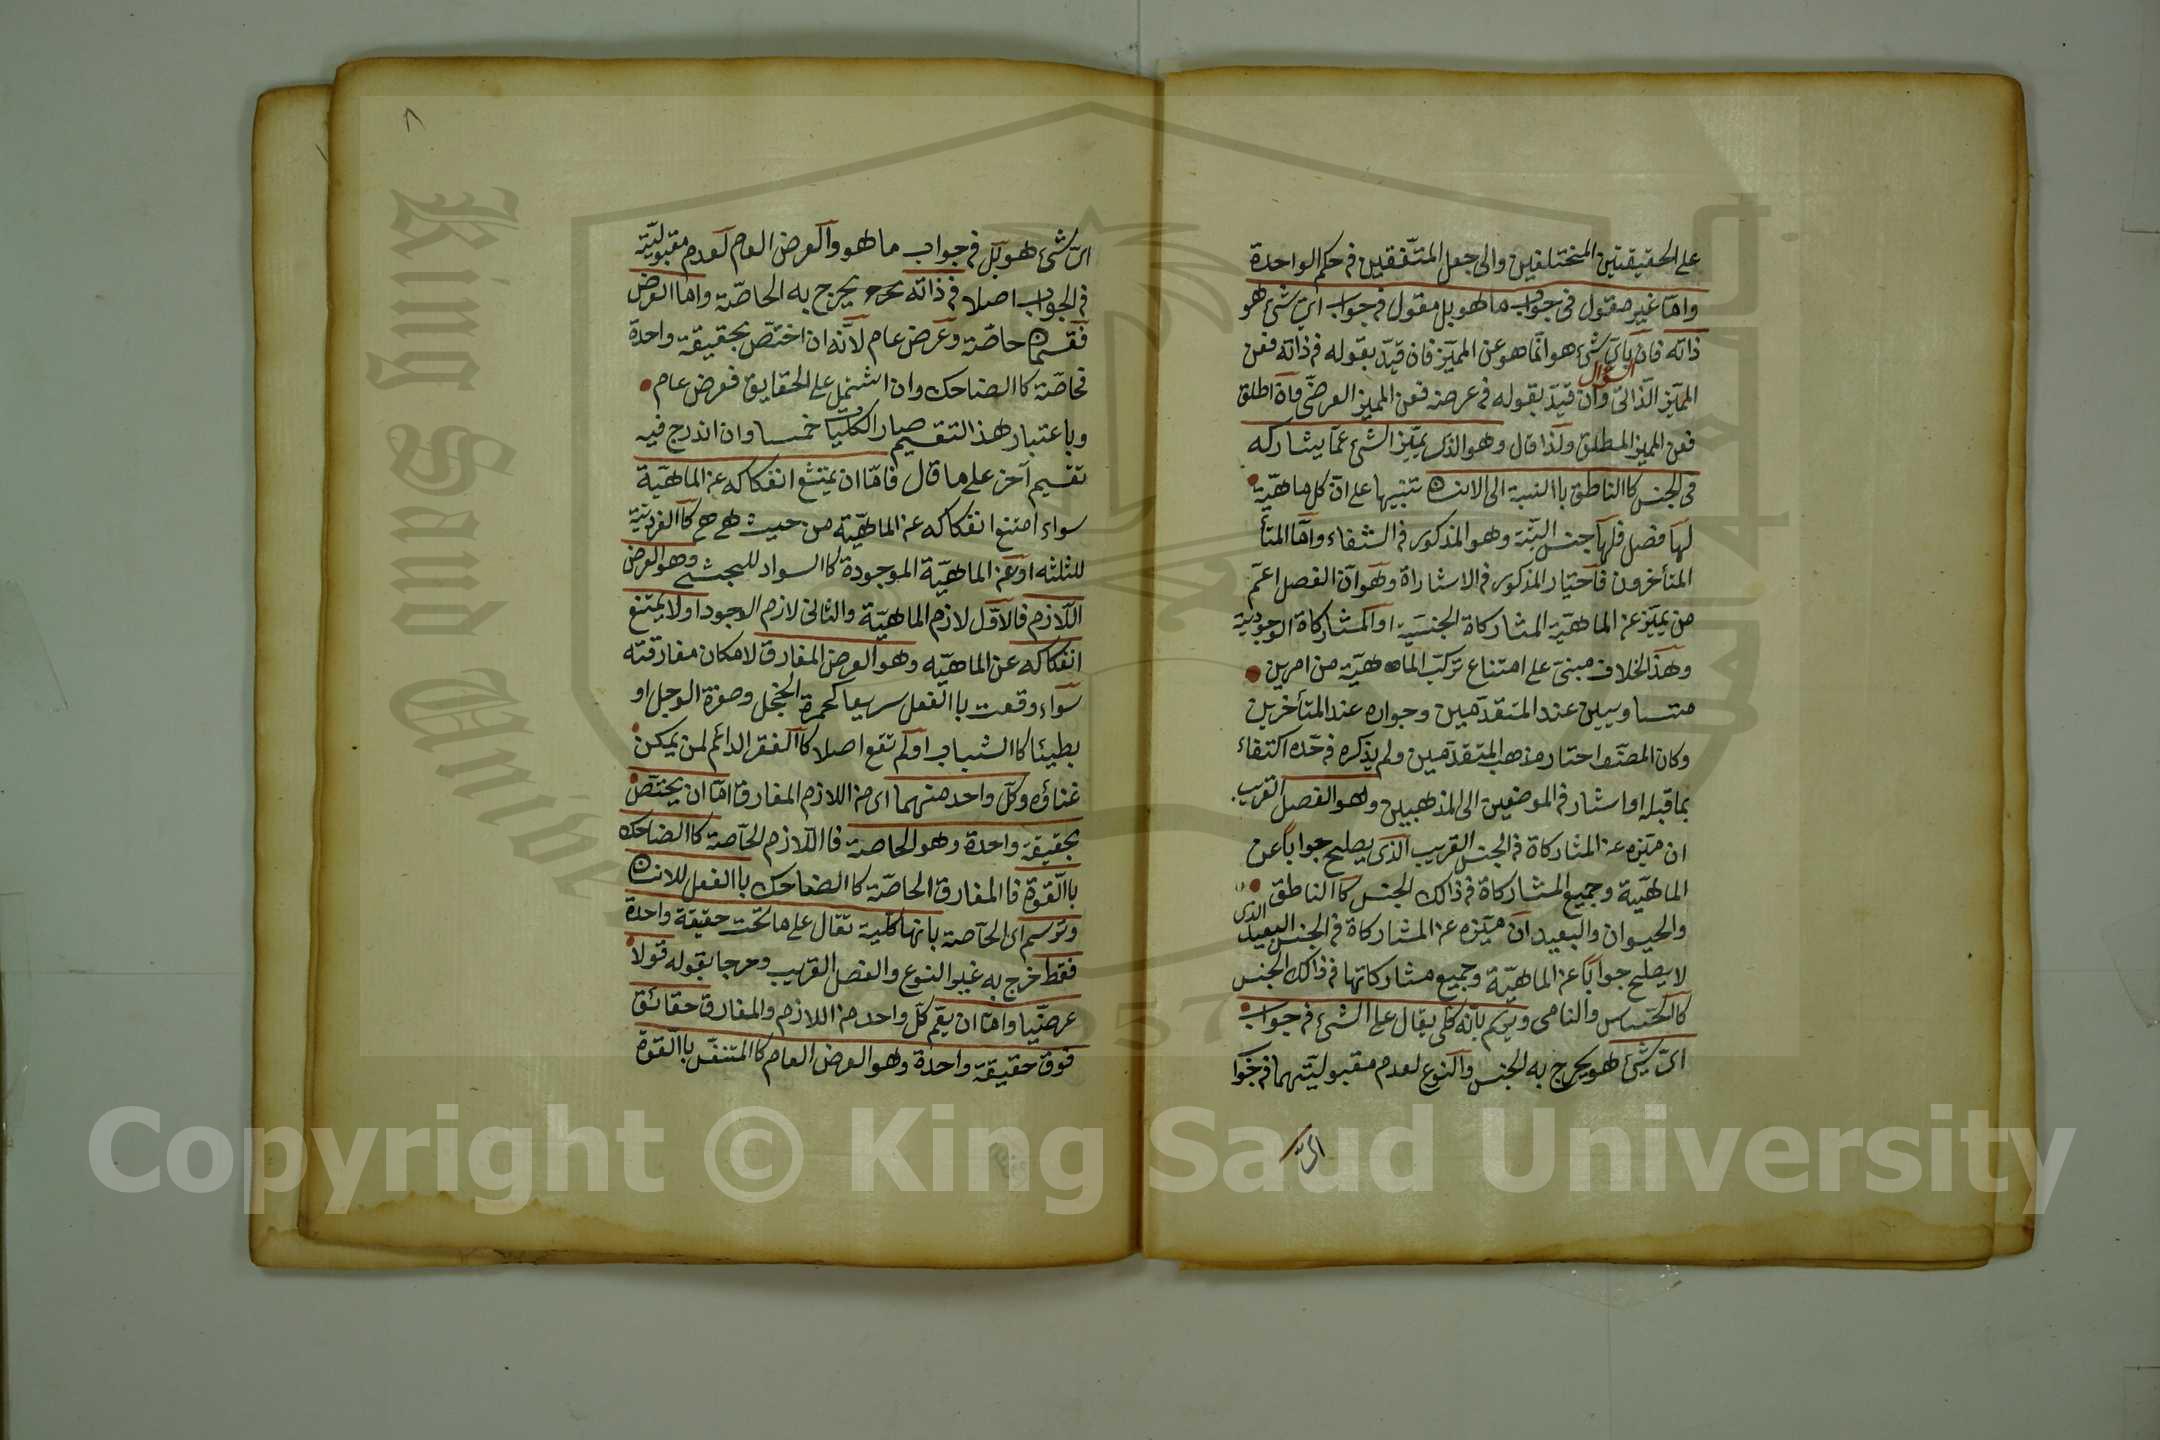 على الحقيقتين المختلفين والى جعل المتفقين فى حكم الواحدة
واما غير مقول فى جواب ما هو بل مقول فى جواب اىّ شئ هو
ذاته فان بأىّ شئ هو انما هو عن المميّز فان قيّد بقوله فى ذاته فعن
السؤال
المميّز الذاتىّ وان قيّد بقوله فى عرضه فعن المميز العرضى وان اطلق
فعن المميز المطلق ولذا قال وهو الذى يميّز الشئ عمّا يشاركه
فى الجنس كاالناطق باالنسبة الى الانسان تنبيها على انّ كل ماهيّة
لها فصل فلها جنس البتة وهو المذكور فى الشفاء وامّا المتأ
المتأخرون فاختيار المذكور فى الاشاراة وهو انّ الفصل اعمّ
من يميّز عن الماهيّة المشاركاة الجنسّية او المشاركاة الوجودية
وهذ الخلاف مبنى على امتناع تركّب الماهيّة من امرين
متساويين عند المتقدّمين وجوازه عند المتأخرين
وكان المصنف اختار مذهب المتقدّمين ولم يذكره فى حّده اكتفاء
بما قبله او اشار فى الموضعين الى المذهبيين وهو الفصل القريب
ان ميّزه عن المشاركاة فى الجنس القريب الّذى يصليح جواباً عن
الماهيّة وجميع المشاركاة فى ذالك الجنس كاالناطق
الذى
والحيوان والبعيد ان ميّزه عن المشاركاة فى الجنس البعيد
لا يصليح جواباً عن الماهيّة وجميع مشاركاتها فى ذالك الجنس
كاالحساس والنامى ويرسم بانّه كلى يقال على الشئ فى جواب
اىّ شئ هو يخرج به الجنس والنوع لعدم مقبوليتهما فى جوا
اىّ
٨
اىّ شئ هو بل فى جواب ما هو والعرض العام لعدم مقبوليّة
فى الجواب اصلا فى ذاته يخرج به الخاصّة واما العرض
فقسمان خاصّة وعرض عام لانّه ان اختصّ بحقيقة واحدة
فخاصّة كاالضاحك وان اشتمل على الحقايق فعرض عام
وباعتبار هذ التقسيم صار الكليّات خمسا وان اندرج فيه
تقسيم آخر على ما قال فامّا ان يمتنع انفكاكه عن الماهيّة
سواء امتنع انفكاكه عن الماهيّة من حيث هى هى كاالفرديّة
للثلثه او عن الماهيّة الموجودة كاالسواد للحبشى وهو العرض
اللّازم فالاوّل لازم الماهيّة والثانى لازم الوجود او لا يمتنع
انفكاكه عن الماهيّه وهو العرض المفارق لامكان مفارقته
سواء وقعت باالفعل سريعا كحمرة الخجل وصفرة الوجل او
بطيئا كاالشباب او لم تقع اصلا كاالفقر الدائم لمن يمكن
غناؤه وكلّ واحد منهما اى من اللازم المفارق امّا ان يختصّ
بحقيقة واحدة وهو الخاصة فا اللّازم الخاصة كاالضاحك
باالقوة فا المفارق الخاصّة كاالضاحك باالفعل للانسان
وترسم اى الخاصة بانها كليّة تقال على ما تحت حقيقة واحدة
فقط خرج به غير النوع والفصل القريب وخرجا بقوله قولا
عرضيّا وامّا ان يعّم كلّ واحد من اللازم والمفارق حقائق
فوق حقيقة واحدة وهو العرض العام كاالمتنفّس باالقوة
King Saud University
1957
Copyright © King Saud University